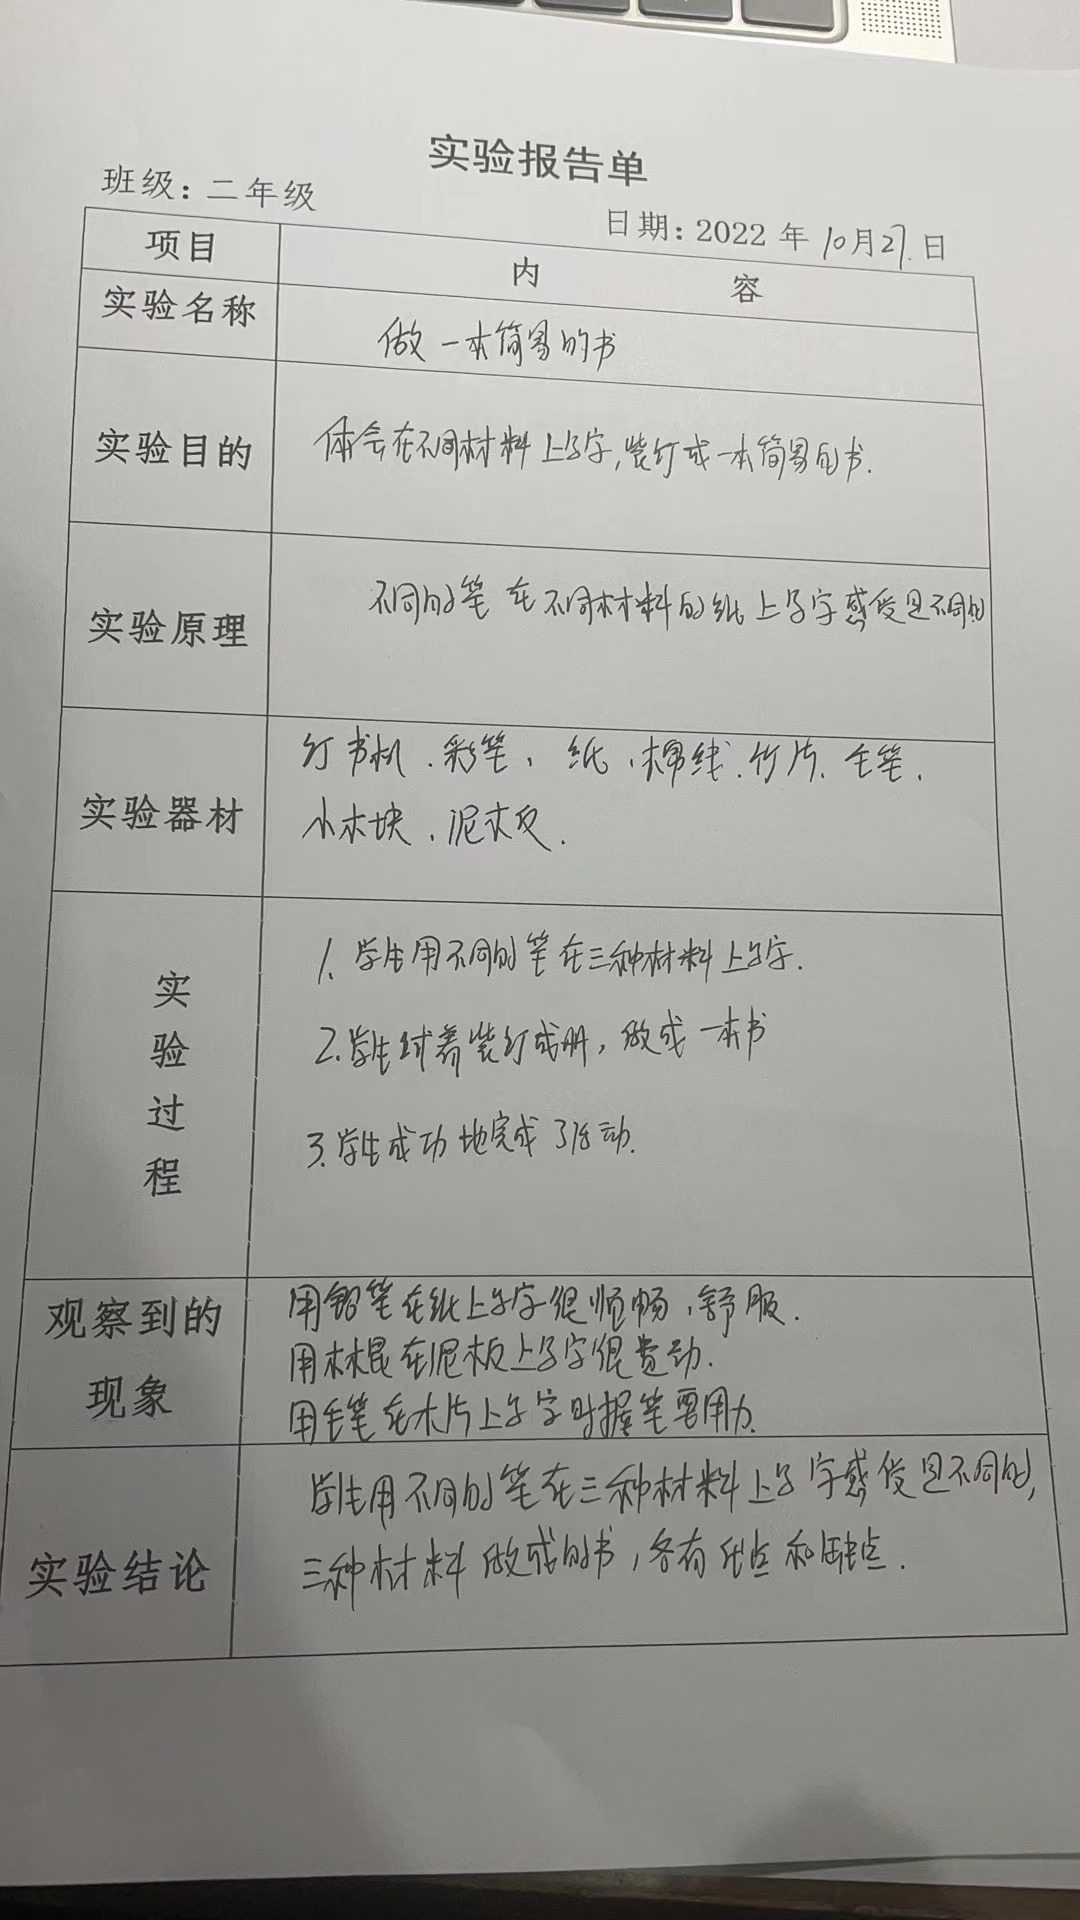 实验报告单
班级：二年级
日期：2022 年 10月27.日
项目
内 容
实验名称
做一本简易的书
实验目的
体会在不同材料上写字，装订成一本简易的书.
实验原理
不同的笔在不同材料的纸上写字感受是不同的
实验器材
订书机、彩笔、纸、棉线、竹片、毛笔、
小木块、泥板.
实验过程
1. 学生用不同的笔在三种材料上写字.
2. 学生试着装订成册，做成一本书
3. 学生成功地完成了活动.
观察到的
现象
用铅笔在纸上写字很顺畅、舒服.
用木棍在泥板上写字很费劲.
用毛笔在木片上写字时握笔要用力.
实验结论
学生用不同的笔在三种材料上写字感受是不同的，
三种材料做成的书，各有优点和缺点.